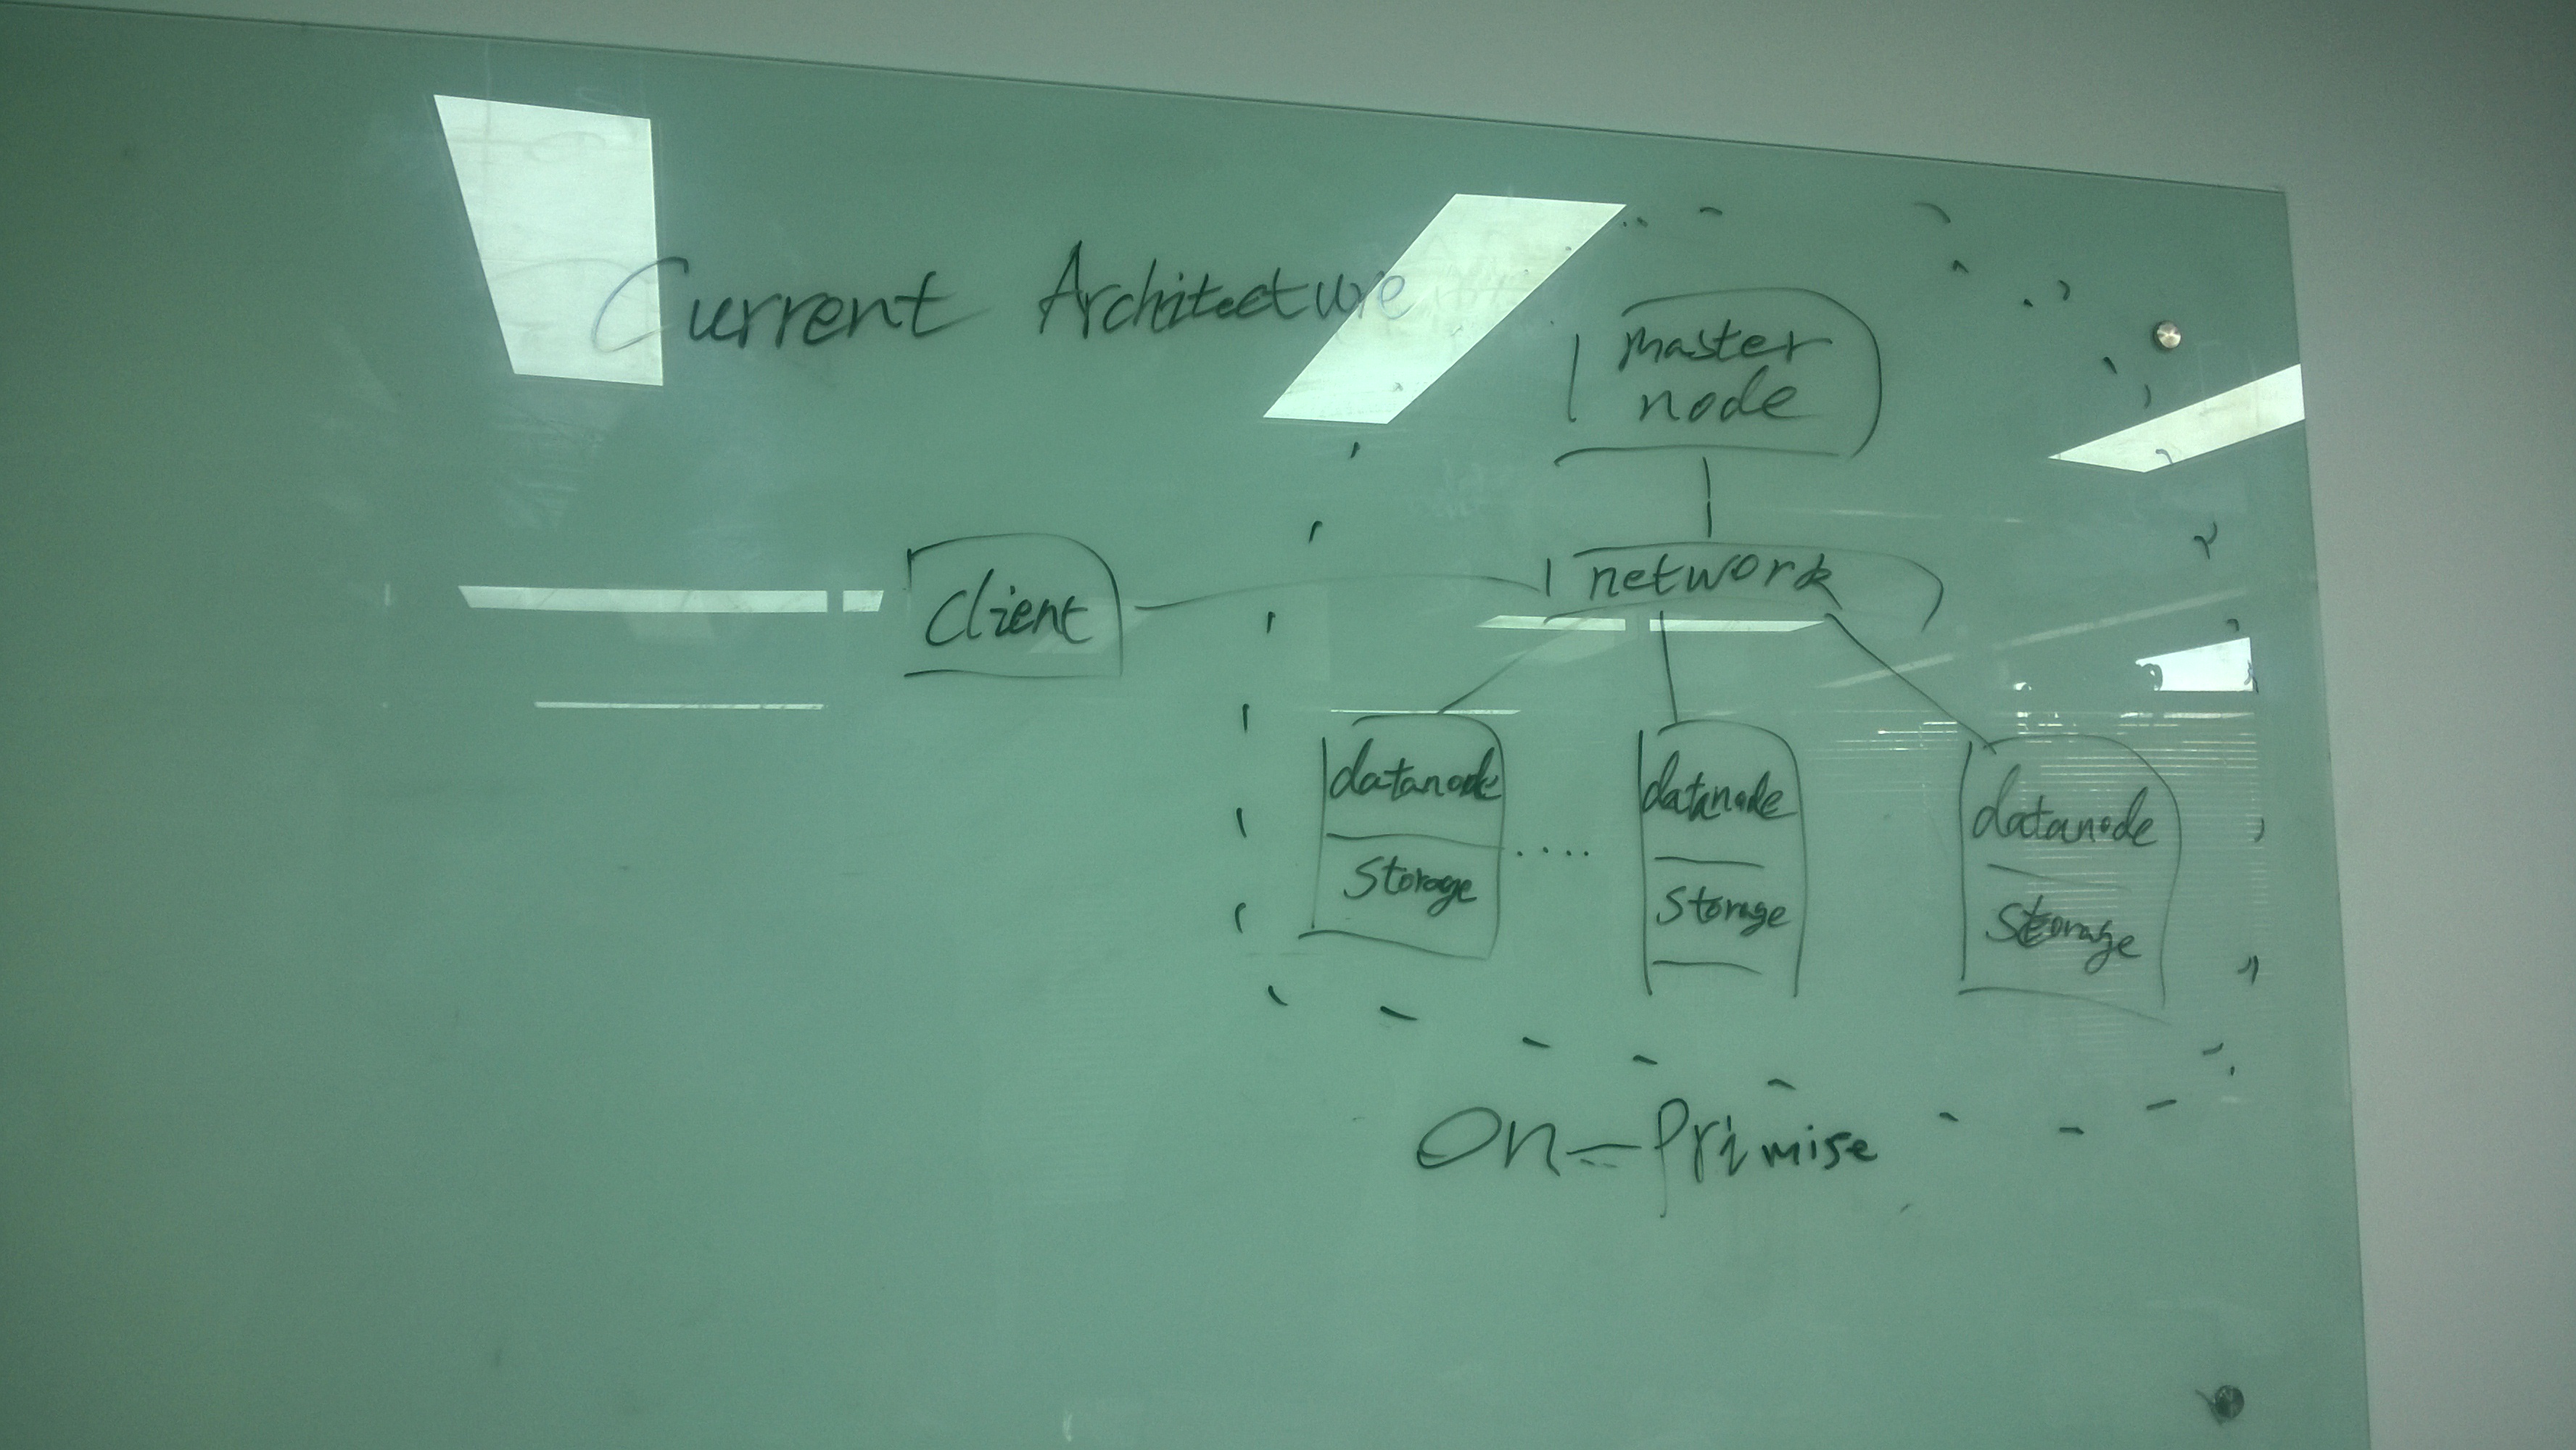 Current Architecture
master
node
Client
network
datanode
Storage
....
datanode
Storage
datanode
Storage
On-Primise